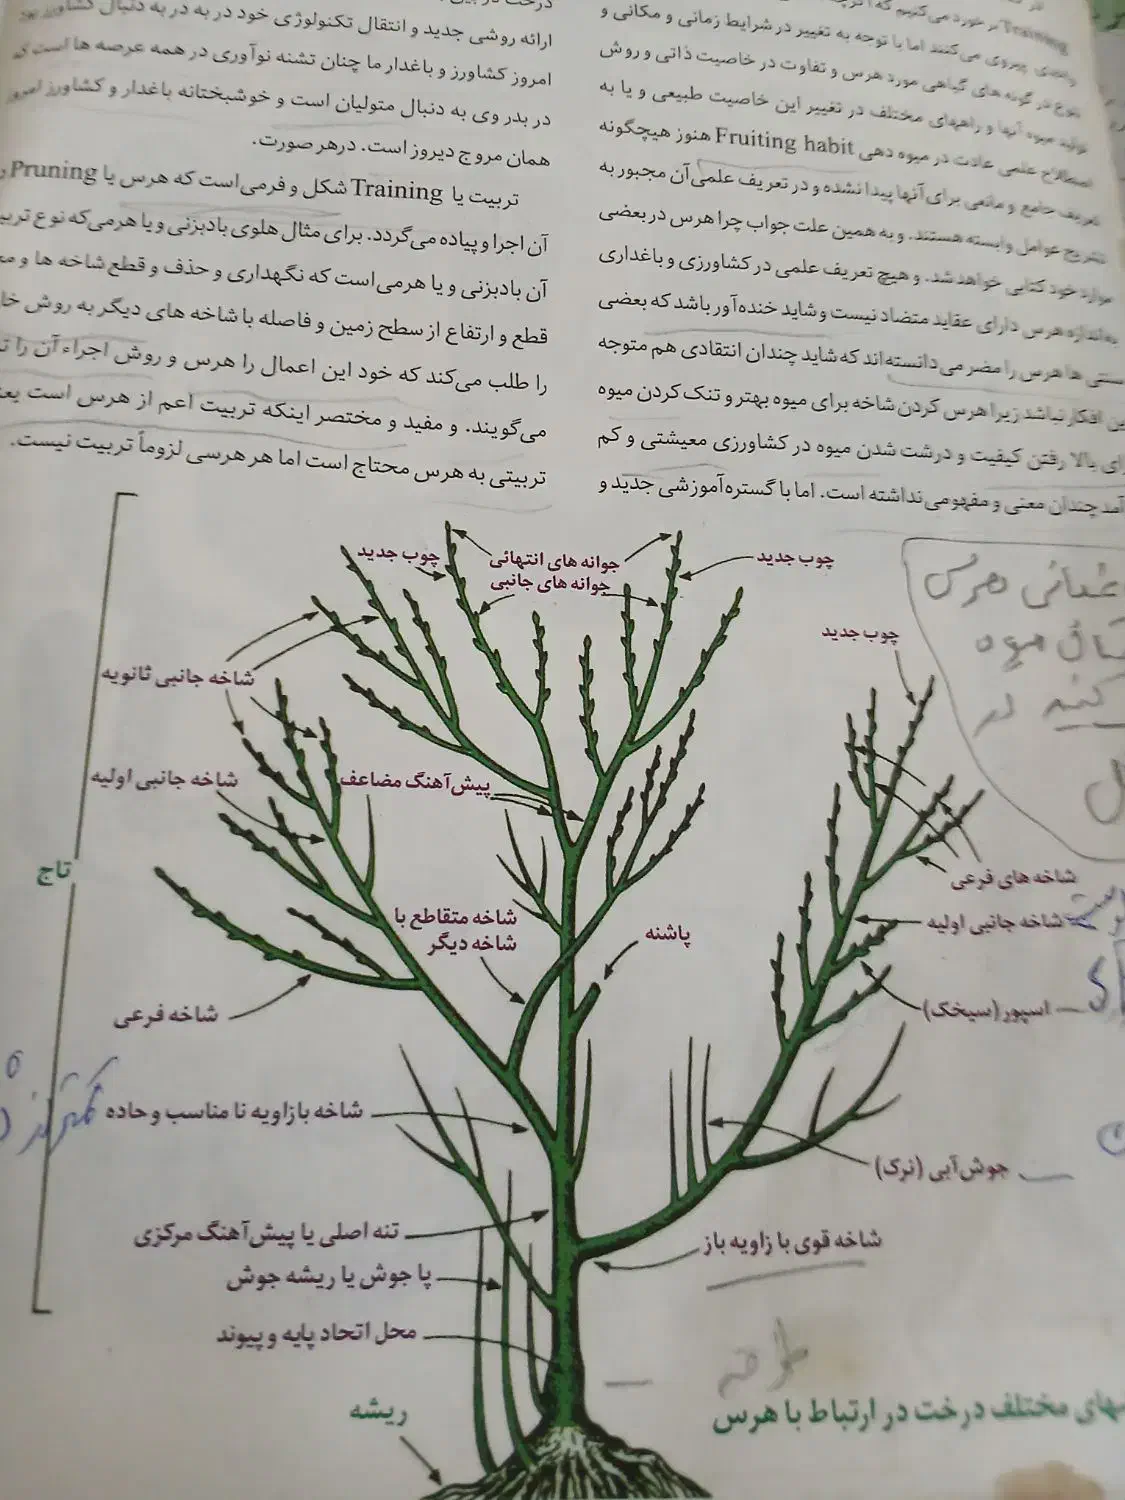 برخورد می‌کنیم که
پیروی می‌کنند اما با توجه به تغییر در شرایط زمانی و مکانی و
نوع در گونه های گیاهی مورد هرس و تفاوت در خاصیت ذاتی و روش
تولید میوه آنها و راههای مختلف در تغییر این خاصیت طبیعی و یا به
اصطلاح علمی عادت در میوه دهی Fruiting habit هنوز هیچگونه
تعریف جامع و مانعی برای آنها پیدا نشده و در تعریف علمی آن مجبور به
تشریح عوامل وابسته هستند. و به همین علت جواب چرا هرس در بعضی
موارد خود کتابی خواهد شد. و هیچ تعریف علمی در کشاورزی و باغداری
به اندازه هرس دارای عقاید متضاد نیست و شاید خنده‌آور باشد که بعضی
سنتی ها هرس را مضر می دانسته‌اند که شاید چندان انتقادی هم متوجه
این افکار نباشد زیرا هرس کردن شاخه برای میوه بهتر و تنک کردن میوه
برای بالا رفتن کیفیت و درشت شدن میوه در کشاورزی معیشتی و کم
درآمد چندان معنی و مفهومی نداشته است. اما با گستره آموزشی جدید و
ارائه روشی جدید و انتقال تکنولوژی خود در به در به دنبال کشاورز بود
امروز کشاورز و باغدار ما چنان تشنه نوآوری در همه عرصه ها است که
در بدر وی به دنبال متولیان است و خوشبختانه باغدار و کشاورز امروز
همان مروج دیروز است. درهر صورت.
تربیت یا Training شکل و فرمی‌است که هرس یا Pruning
آن اجرا و پیاده می‌گردد. برای مثال هلوی بادبزنی و یا هرمی‌که نوع
آن بادبزنی و یا هرمی‌است که نگهداری و حذف و قطع شاخه ها و
قطع و ارتفاع از سطح زمین و فاصله با شاخه های دیگر به روش
را طلب می‌کند که خود این اعمال را هرس و روش اجراء آن را
می‌گویند. و مفید و مختصر اینکه تربیت اعم از هرس است
تربیتی به هرس محتاج است اما هر هرسی لزوماً تربیت نیست.
جوانه های انتهائی
چوب جدید
چوب جدید
جوانه های جانبی
چوب جدید
شاخه جانبی ثانویه
شاخه جانبی اولیه
پیش‌آهنگ مضاعف
تاج
شاخه های فرعی
شاخه متقاطع با
شاخه دیگر
پاشنه
شاخه جانبی اولیه
شاخه فرعی
اسپور (سیخک)
شاخه بازاویه نا مناسب و حاده
جوش‌آبی (نرک)
تنه اصلی یا پیش‌آهنگ مرکزی
شاخه قوی با زاویه باز
پا جوش یا ریشه جوش
محل اتحاد پایه و پیوند
ریشه
مختلف درخت در ارتباط با هرس
هرس
میوه